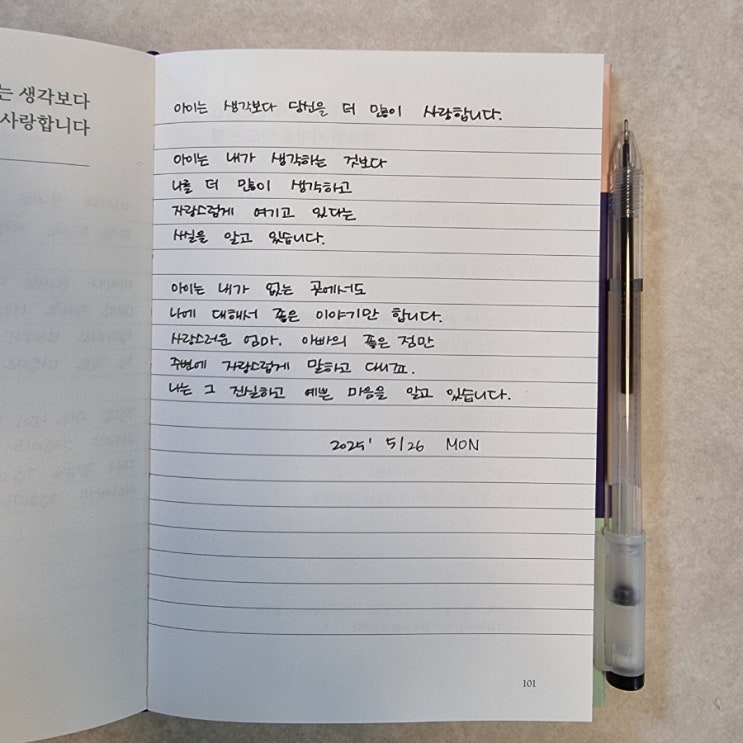 는 생각보다
사랑합니다
아이는 생각보다 당신을 더 많이 사랑합니다.
아이는 내가 생각하는 것보다
나를 더 많이 생각하고
자랑스럽게 여기고 있다는
사실을 알고 있습니다.
아이는 내가 없는 곳에서도
나에 대해서 좋은 이야기만 합니다.
사랑스러운 엄마, 아빠의 좋은 점만
주변에 자랑스럽게 말하고 다니죠.
나는 그 진실하고 예쁜 마음을 알고 있습니다.
2025' 5/26 MON
101